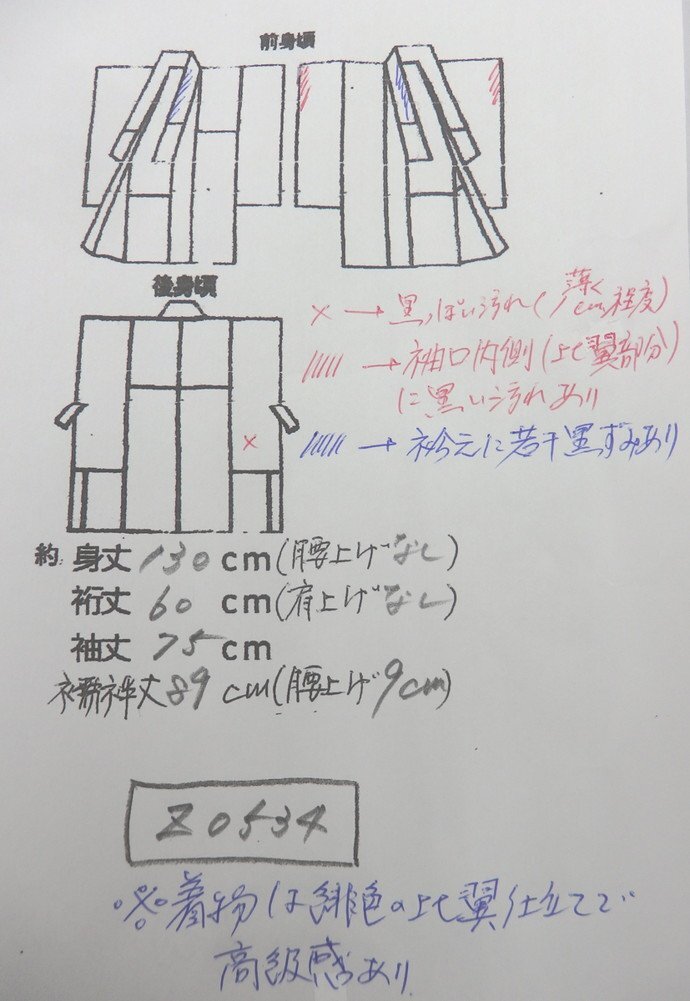 前身頃
後身頃
× → 黒っぽい汚れ(薄く
cm程度)
→ 袖口内側(比翼部分)
に黒い汚れあり
→ 衿元に若干黒ずみあり
約 身丈 130 cm(腰上げなし)
裄丈 60 cm(肩上げなし)
袖丈 75 cm
襦袢丈 89 cm(腰上げ 9cm)
Z0534
※着物は緋色の比翼仕立てで
高級感あり